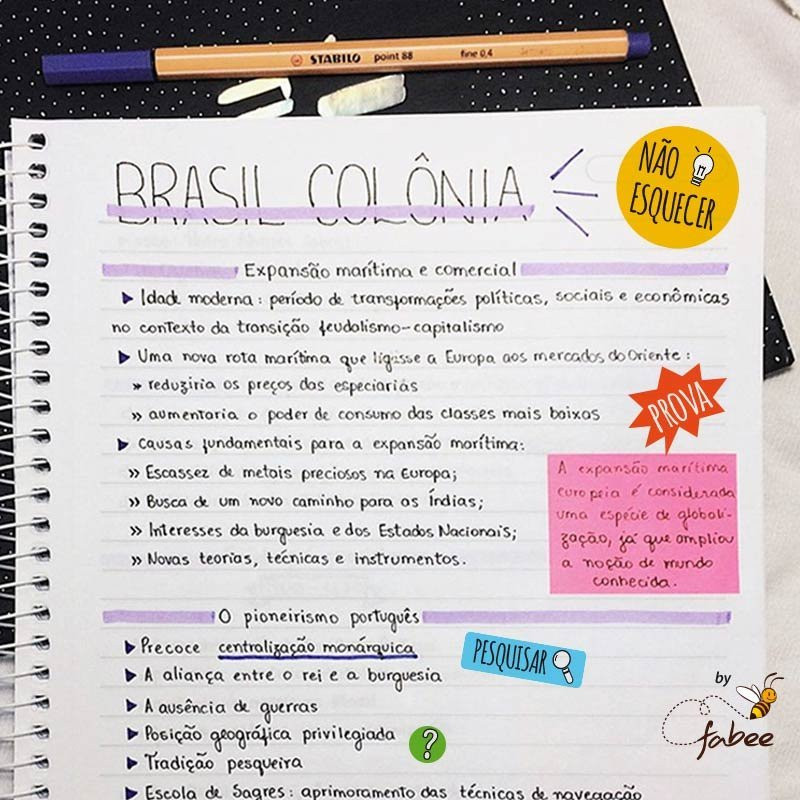 STABILO point 88 fine 0,4
BRASIL COLÔNIA
NÃO
ESQUECER
Expansão marítima e comercial
▶ Idade moderna: período de transformações políticas, sociais e econômicas
no contexto da transição feudalismo-capitalismo
▶ Uma nova rota marítima que ligasse a Europa aos mercados do Oriente:
» reduziria os preços das especiarias
» aumentaria o poder de consumo das classes mais baixas
PROVA
▶ causas fundamentais para a expansão marítima:
» Escassez de metais preciosos na Europa;
» Busca de um novo caminho para as Índias;
» Interesses da burguesia e dos Estados Nacionais;
» Novas teorias, técnicas e instrumentos.
A expansão marítima
europeia é considerada
uma espécie de globali-
zação, já que ampliou
a noção de mundo
conhecida.
O pioneirismo português
▶ Precoce centralização monárquica
PESQUISAR
▶ A aliança entre o rei e a burguesia
▶ A ausência de guerras
▶ Posição geográfica privilegiada
?
▶ Tradição pesqueira
▶ Escola de Sagres: aprimoramento das técnicas de navegação
by
fabee